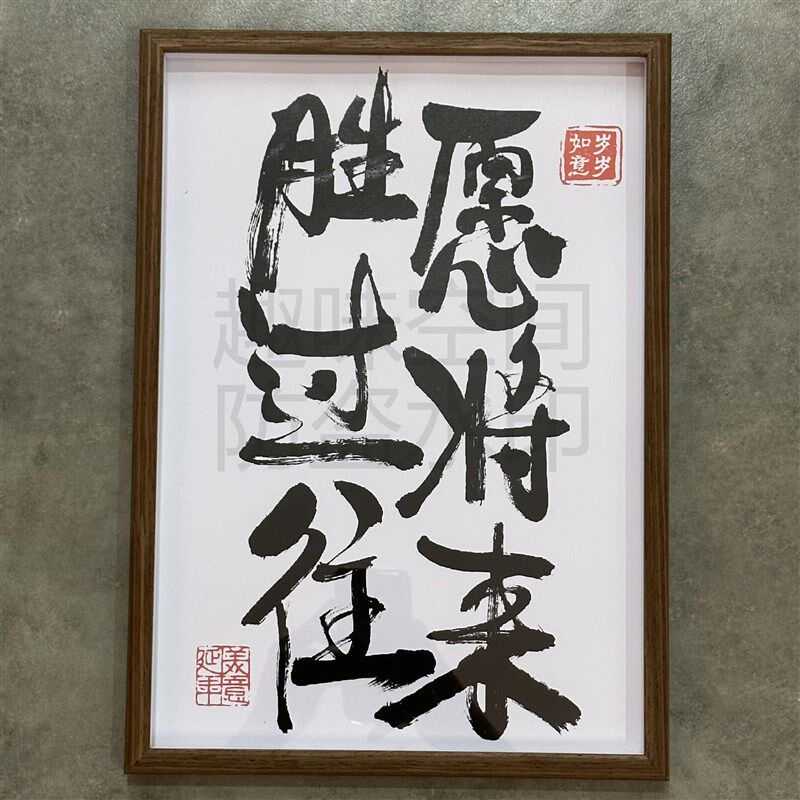 岁岁
如意
愿将来
胜过往
美意
延年
趣味空间
防盗水印